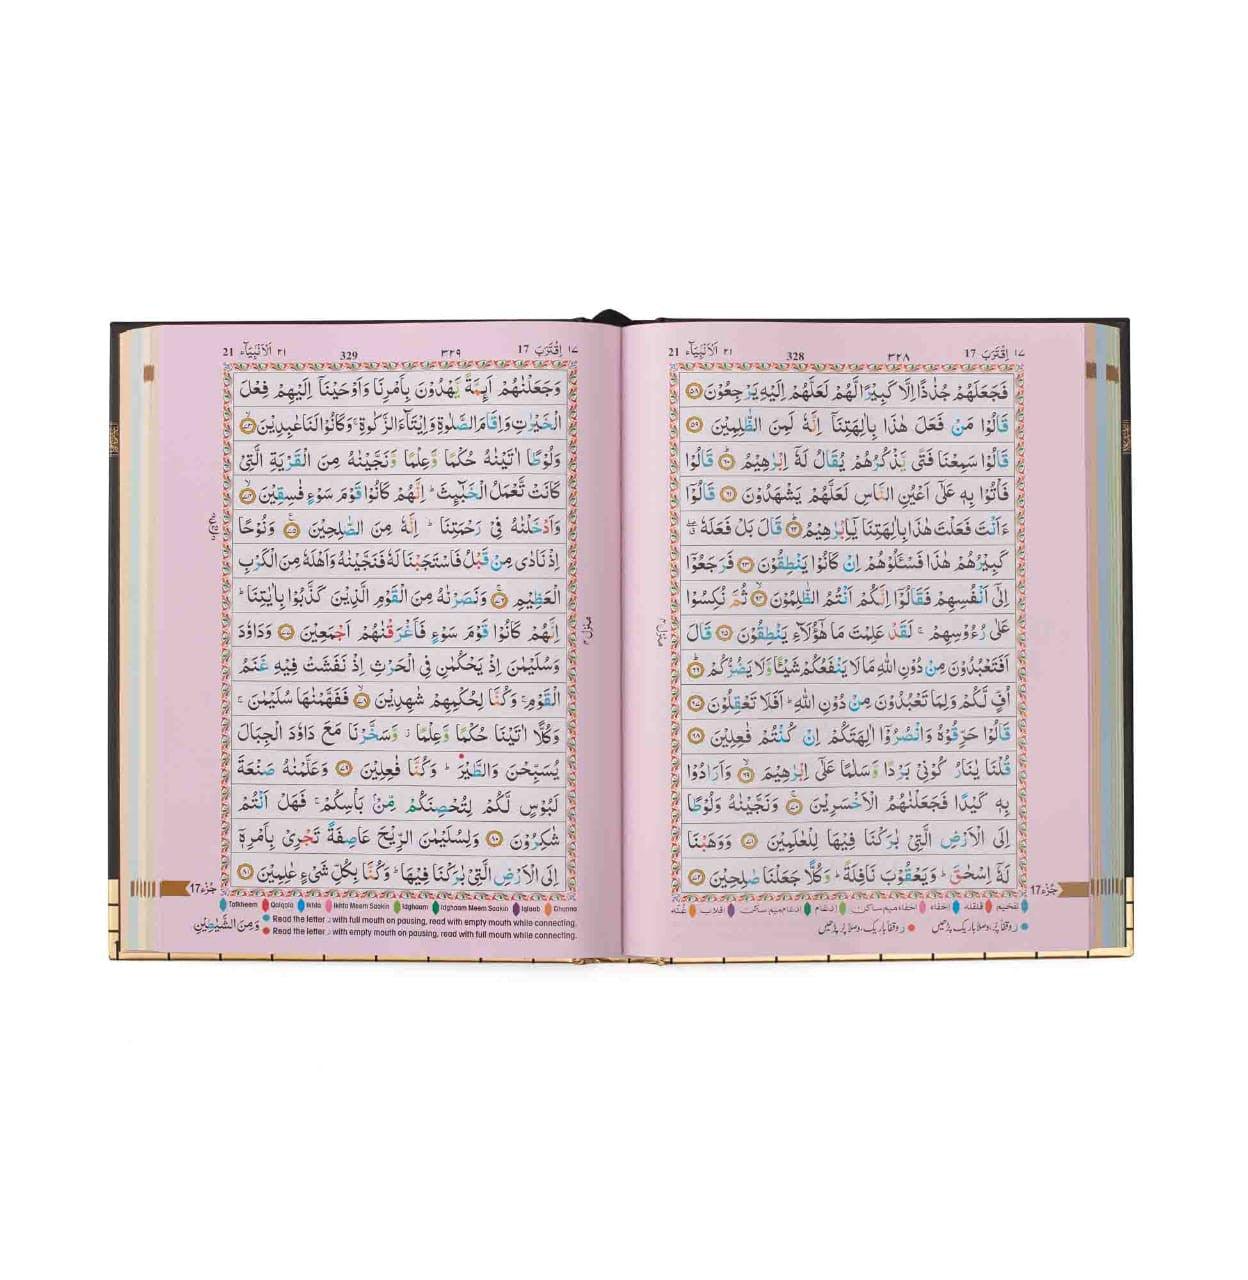 ١٧ اِقْتَرَبَ 17 ٣٢٨ 328 ٢١ اَلْاَنْبِيَآء 21
فَجَعَلَهُمْ جُذٰذًا اِلَّا كَبِيْرًا لَّهُمْ لَعَلَّهُمْ اِلَيْهِ يَرْجِعُوْنَ ﴿٥٨﴾
قَالُوْا مَنْ فَعَلَ هٰذَا بِاٰلِهَتِنَآ اِنَّهٗ لَمِنَ الظّٰلِمِيْنَ ﴿٥٩﴾
قَالُوْا سَمِعْنَا فَتًى يَّذْكُرُهُمْ يُقَالُ لَهٗٓ اِبْرٰهِيْمُ ﴿٦٠﴾ قَالُوْا
فَاْتُوْا بِهٖ عَلٰٓى اَعْيُنِ النَّاسِ لَعَلَّهُمْ يَشْهَدُوْنَ ﴿٦١﴾ قَالُوْٓا
ءَاَنْتَ فَعَلْتَ هٰذَا بِاٰلِهَتِنَا يٰٓاِبْرٰهِيْمُ ﴿٦٢﴾ قَالَ بَلْ فَعَلَهٗ
كَبِيْرُهُمْ هٰذَا فَسْـَٔلُوْهُمْ اِنْ كَانُوْا يَنْطِقُوْنَ ﴿٦٣﴾ فَرَجَعُوْٓا
اِلٰٓى اَنْفُسِهِمْ فَقَالُوْٓا اِنَّكُمْ اَنْتُمُ الظّٰلِمُوْنَ ﴿٦٤﴾ ثُمَّ نُكِسُوْا
عَلٰى رُءُوْسِهِمْ ۚ لَقَدْ عَلِمْتَ مَا هٰٓؤُلَآءِ يَنْطِقُوْنَ ﴿٦٥﴾ قَالَ
اَفَتَعْبُدُوْنَ مِنْ دُوْنِ اللّٰهِ مَا لَا يَنْفَعُكُمْ شَيْـًٔا وَّلَا يَضُرُّكُمْ ﴿٦٦﴾
اُفٍّ لَّكُمْ وَلِمَا تَعْبُدُوْنَ مِنْ دُوْنِ اللّٰهِ ؕ اَفَلَا تَعْقِلُوْنَ ﴿٦٧﴾
قَالُوْا حَرِّقُوْهُ وَانْصُرُوْٓا اٰلِهَتَكُمْ اِنْ كُنْتُمْ فٰعِلِيْنَ ﴿٦٨﴾
قُلْنَا يٰنَارُ كُوْنِيْ بَرْدًا وَّسَلٰمًا عَلٰٓى اِبْرٰهِيْمَ ﴿٦٩﴾ وَاَرَادُوْا
بِهٖ كَيْدًا فَجَعَلْنٰهُمُ الْاَخْسَرِيْنَ ﴿٧٠﴾ وَنَجَّيْنٰهُ وَلُوْطًا
اِلَى الْاَرْضِ الَّتِيْ بٰرَكْنَا فِيْهَا لِلْعٰلَمِيْنَ ﴿٧١﴾ وَوَهَبْنَا
لَهٗٓ اِسْحٰقَ ؕ وَيَعْقُوْبَ نَافِلَةً ؕ وَكُلًّا جَعَلْنَا صٰلِحِيْنَ ﴿٧٢﴾
منزل ٤
جُزْء 17
تفخیم قلقله إخفاء إخفاء ميم ساكن إدغام إدغام ميم ساكن اقلاب غنّه
ر وقفًا پُر، وصلًا باریک پڑھیں ر وقفًا باریک، وصلًا پُر پڑھیں
١٧ اِقْتَرَبَ 17 ٣٢٩ 329 ٢١ اَلْاَنْبِيَآء 21
وَجَعَلْنٰهُمْ اَئِمَّةً يَّهْدُوْنَ بِاَمْرِنَا وَاَوْحَيْنَآ اِلَيْهِمْ فِعْلَ
الْخَيْرٰتِ وَاِقَامَ الصَّلٰوةِ وَاِيْتَآءَ الزَّكٰوةِ ۚ وَكَانُوْا لَنَا عٰبِدِيْنَ ﴿٧٣﴾
وَلُوْطًا اٰتَيْنٰهُ حُكْمًا وَّعِلْمًا وَّنَجَّيْنٰهُ مِنَ الْقَرْيَةِ الَّتِيْ
كَانَتْ تَّعْمَلُ الْخَبٰٓئِثَ ؕ اِنَّهُمْ كَانُوْا قَوْمَ سَوْءٍ فٰسِقِيْنَ ﴿٧٤﴾
وَاَدْخَلْنٰهُ فِيْ رَحْمَتِنَا ؕ اِنَّهٗ مِنَ الصّٰلِحِيْنَ ﴿٧٥﴾ وَنُوْحًا
اِذْ نَادٰى مِنْ قَبْلُ فَاسْتَجَبْنَا لَهٗ فَنَجَّيْنٰهُ وَاَهْلَهٗ مِنَ الْكَرْبِ
الْعَظِيْمِ ﴿٧٦﴾ وَنَصَرْنٰهُ مِنَ الْقَوْمِ الَّذِيْنَ كَذَّبُوْا بِاٰيٰتِنَا ؕ
اِنَّهُمْ كَانُوْا قَوْمَ سَوْءٍ فَاَغْرَقْنٰهُمْ اَجْمَعِيْنَ ﴿٧٧﴾ وَدَاوٗدَ
وَسُلَيْمٰنَ اِذْ يَحْكُمٰنِ فِي الْحَرْثِ اِذْ نَفَشَتْ فِيْهِ غَنَمُ
الْقَوْمِ ۚ وَكُنَّا لِحُكْمِهِمْ شٰهِدِيْنَ ﴿٧٨﴾ فَفَهَّمْنٰهَا سُلَيْمٰنَ ۚ
وَكُلًّا اٰتَيْنَا حُكْمًا وَّعِلْمًا ۫ وَّسَخَّرْنَا مَعَ دَاوٗدَ الْجِبَالَ
يُسَبِّحْنَ وَالطَّيْرَ ؕ وَكُنَّا فٰعِلِيْنَ ﴿٧٩﴾ وَعَلَّمْنٰهُ صَنْعَةَ
لَبُوْسٍ لَّكُمْ لِتُحْصِنَكُمْ مِّنْۢ بَاْسِكُمْ ۚ فَهَلْ اَنْتُمْ
شٰكِرُوْنَ ﴿٨٠﴾ وَلِسُلَيْمٰنَ الرِّيْحَ عَاصِفَةً تَجْرِيْ بِاَمْرِهٖٓ
اِلَى الْاَرْضِ الَّتِيْ بٰرَكْنَا فِيْهَا ؕ وَكُنَّا بِكُلِّ شَيْءٍ عٰلِمِيْنَ ﴿٨١﴾
منزل ٤
جُزْء 17
Tafkheem Qalqala Ikhfa Ikhfa Meem Saakin Idghaam Idghaam Meem Saakin Iqlaab Ghunna
Read the letter ر with full mouth on pausing, read with empty mouth while connecting.
Read the letter ر with empty mouth on pausing, read with full mouth while connecting.
وَمِنَ الشَّيٰطِيْنِ